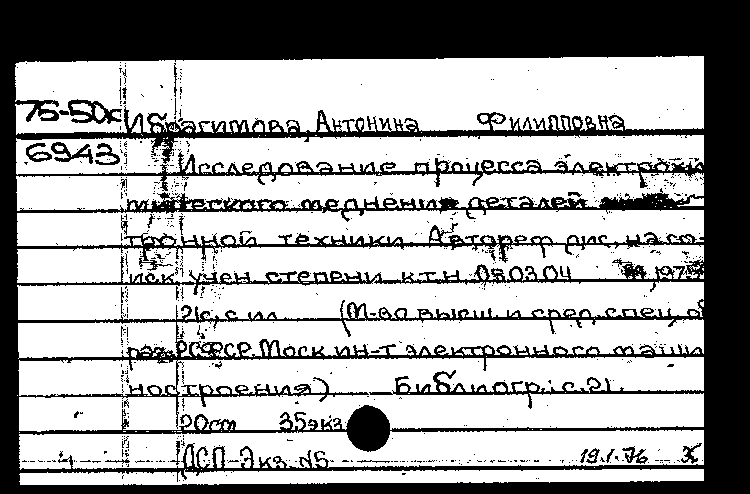 76-50к Ибрагимова, Антонина Филипповна
6943 Исследование процесса электрохи
мического меднения деталей
тронной техники. Автореф дис, на со-
иск учен степени к.т.н 05.03.04 М, 1975
21с, с ил. (М-во высш. и сред. спец. об
раз. РСФСР. Моск ин-т электронного маши
ностроения). Библиогр.: с. 21.
POст 35экз
ч ДСП Экз. №5 19.1.76